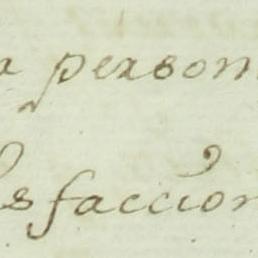 a person
s faccion